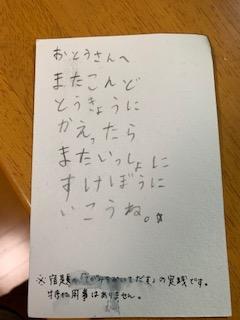 おとうさんへ
またこんど
とうきょうに
かえったら
またいっしょに
すけぼうに
いこうね。
※宿題の「てがみをかいてだす」の実践です。
特別用事はありません。